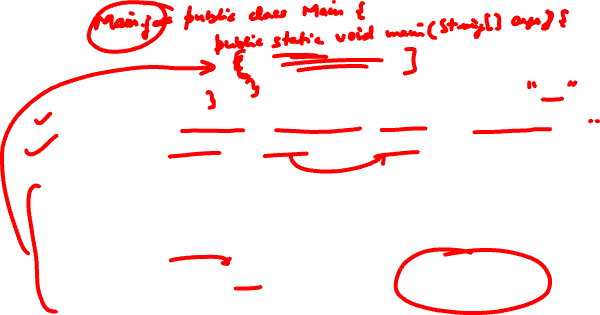 Main.java public class Main {
public static void main(String[] args) {
{ ]
}
}
"—"